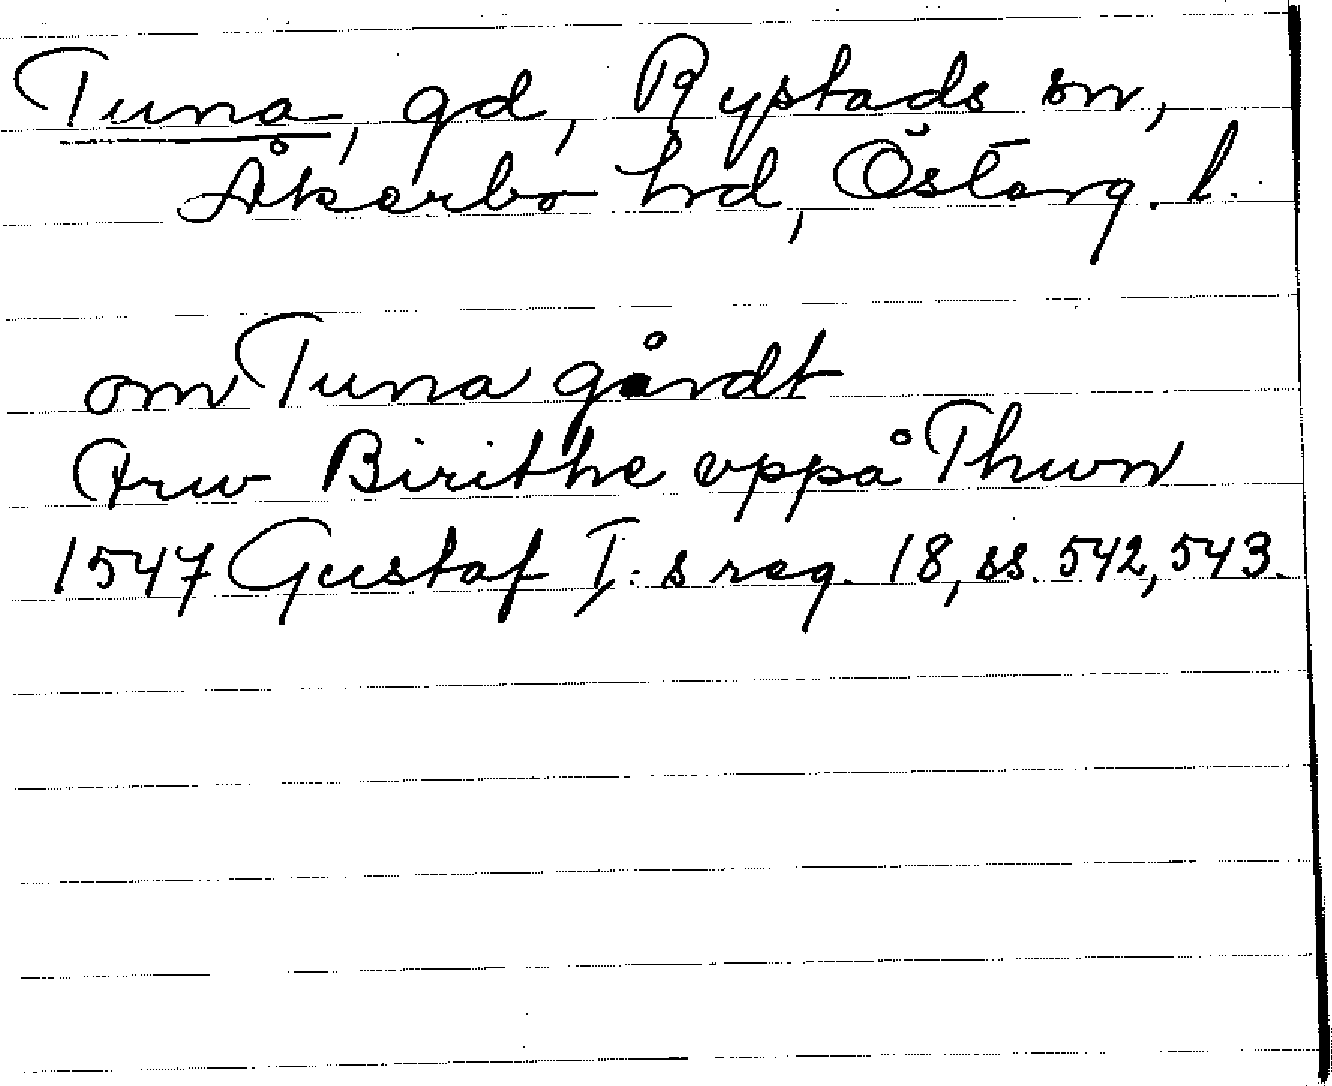 Tuna, gd, Rystads sn,
Åkerbo hd, Österg. l.
om Tuna gårdt
Frw Birithe vppå Thwn
1547 Gustaf I:s reg. 18, ss. 542, 543.